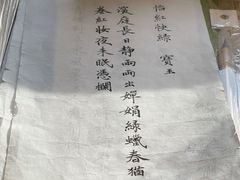 怡紅快綠 寶玉
深庭長日靜兩兩出嬋娟綠蠟春猶
卷紅妝夜未眠憑欄